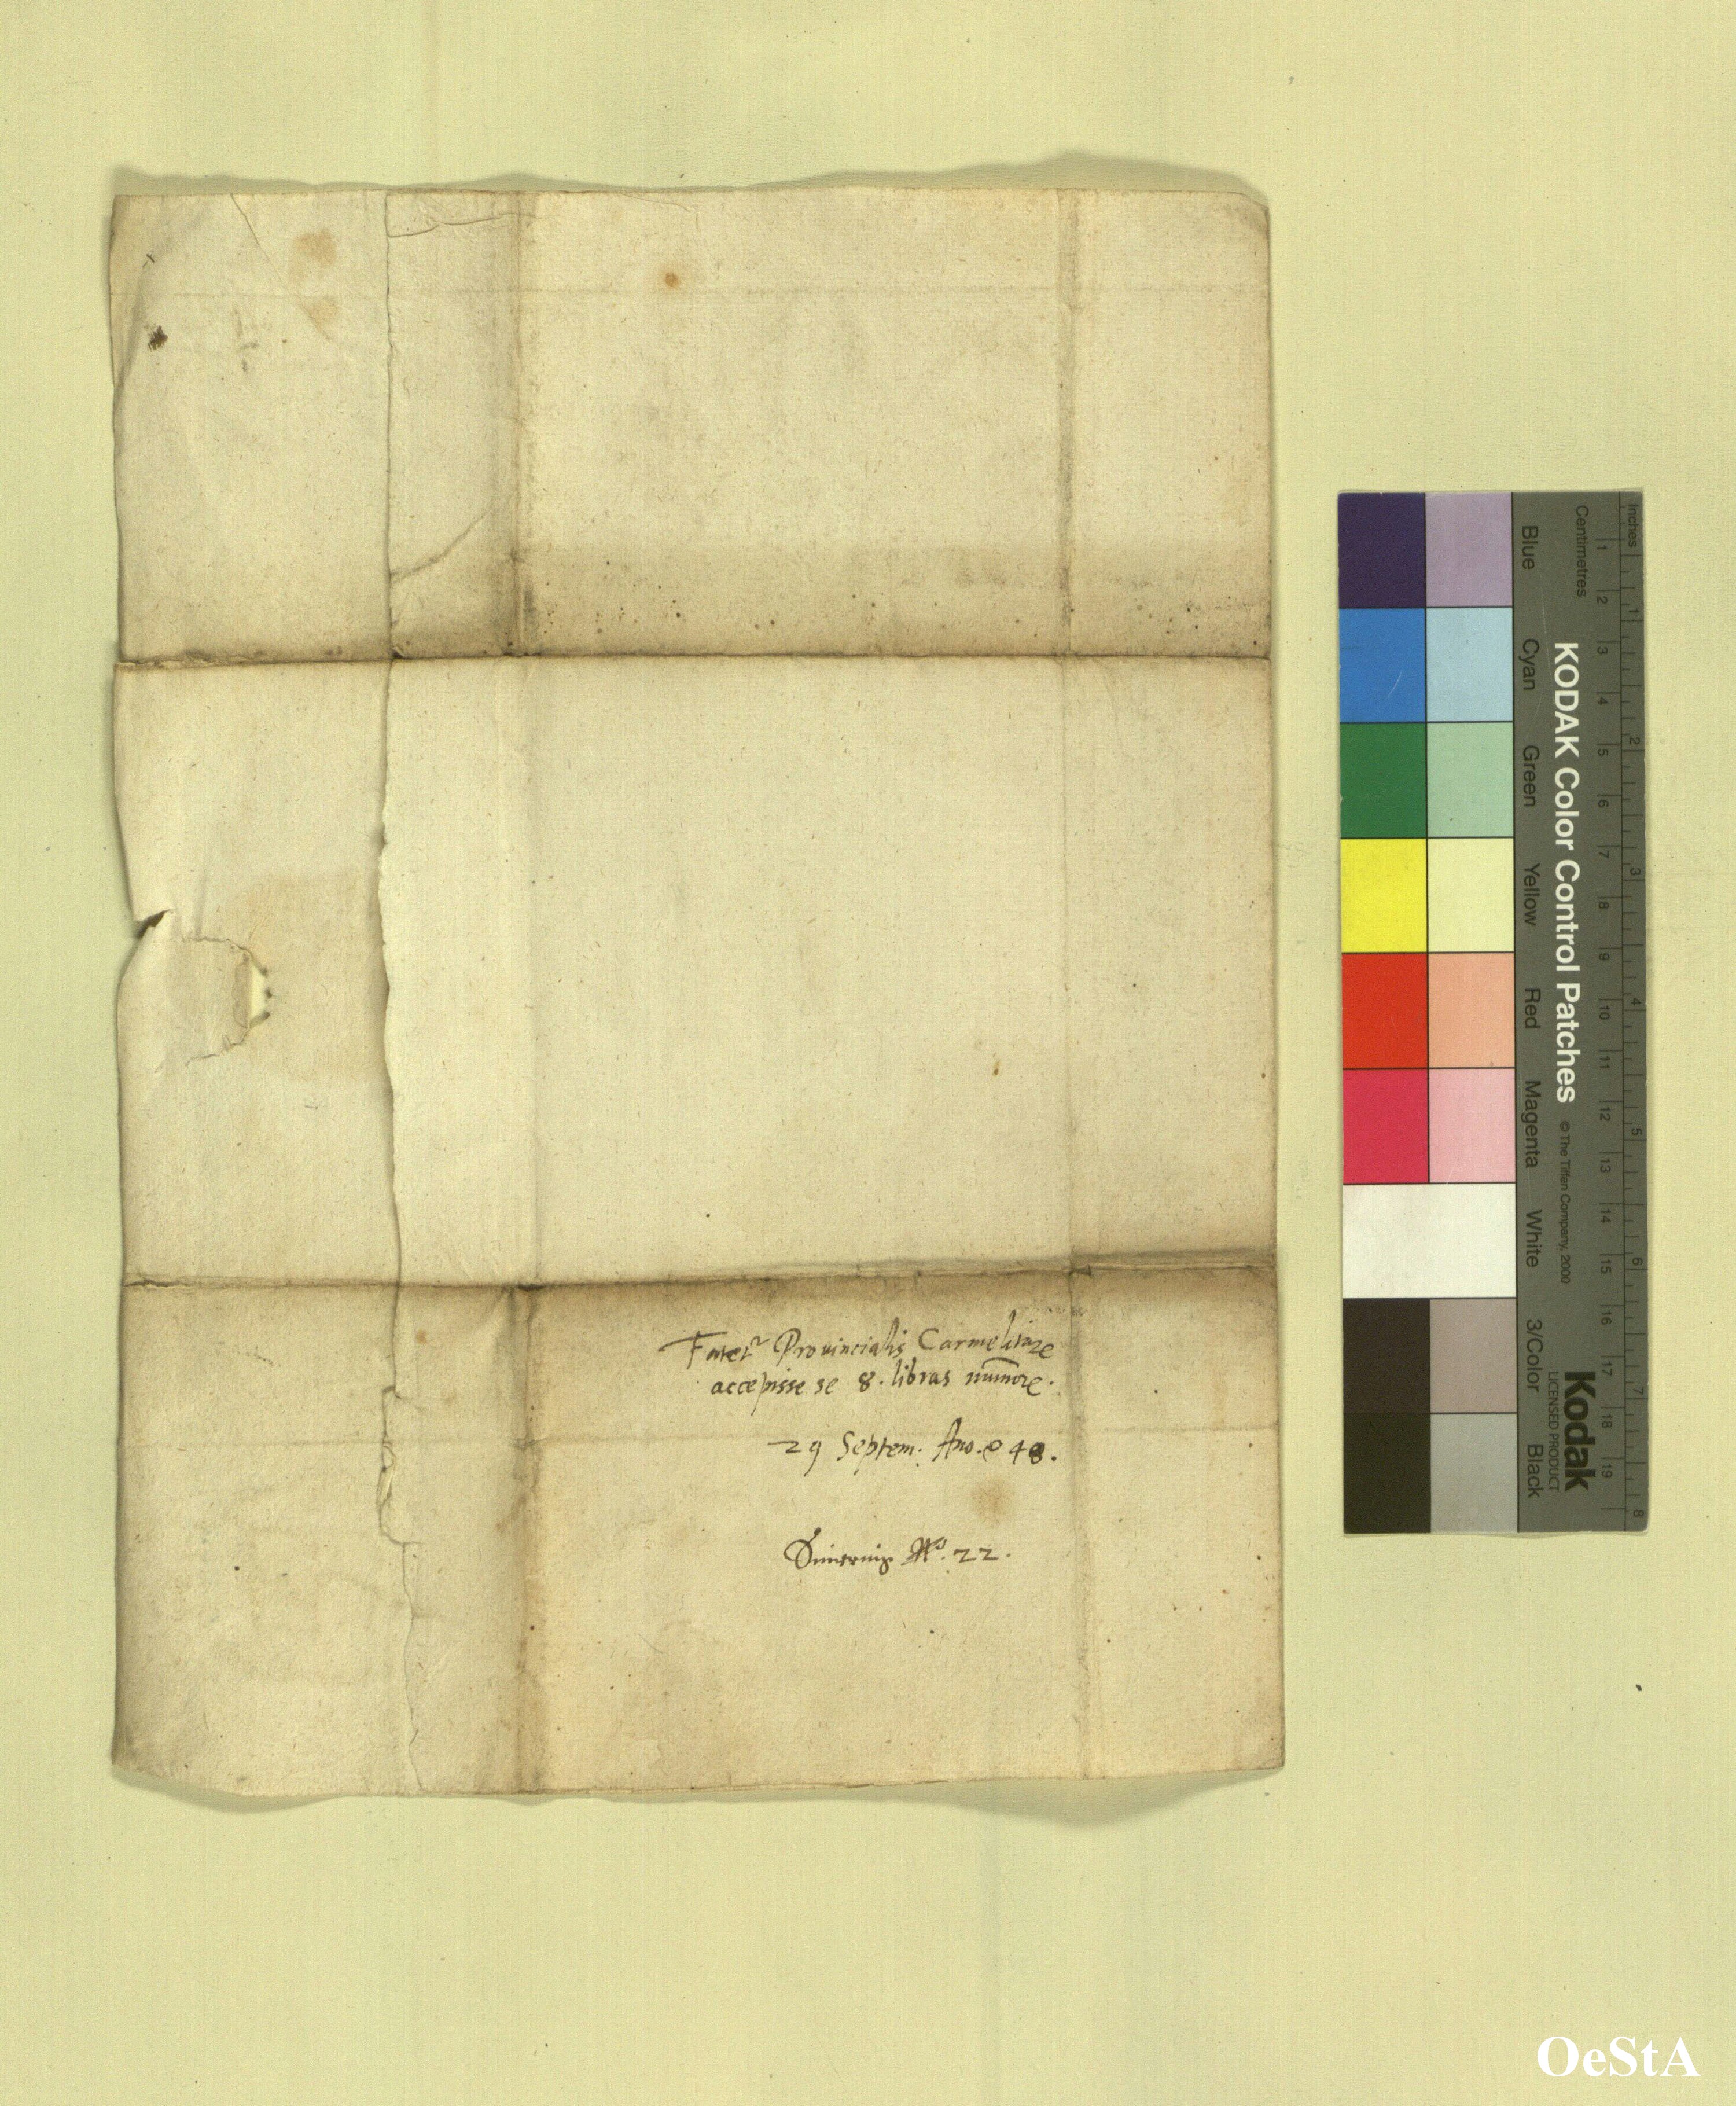 Fatet~ Provincialis Carmelitaꝝ
accepisse se 8. libras num̄oꝝ.
29 Septem. Año. 48.
No. 22.
Inches
Centimetres
1 2 3 4 5 6 7 8
1 2 3 4 5 6 7 8 9 10 11 12 13 14 15 16 17 18 19
KODAK Color Control Patches © The Tiffen Company, 2000
Kodak
LICENSED PRODUCT
Blue Cyan Green Yellow Red Magenta White 3/Color Black
OeStA